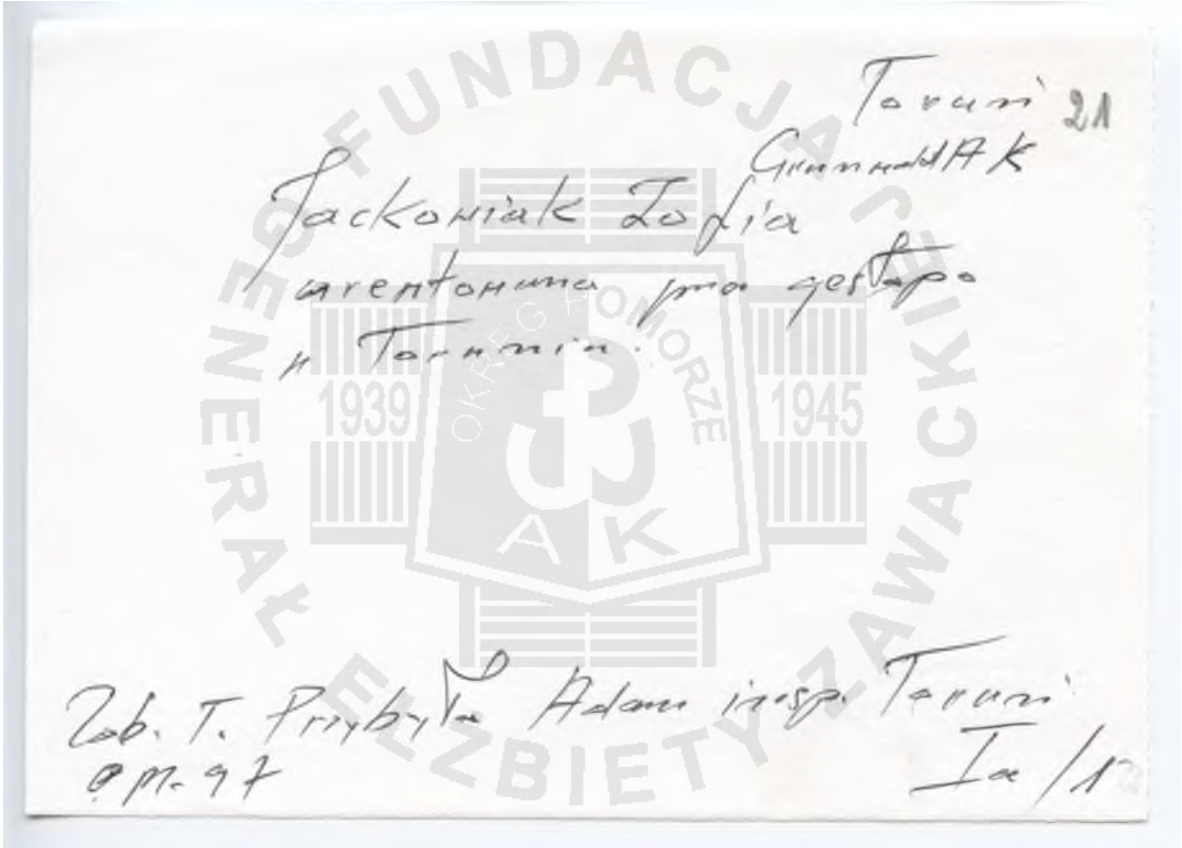 Toruń 21
Grunwald AK
Jackowiak Zofia
aresztowana przez gestapo
w Toruniu.
Zob. T. Przybyła Adam insp. Toruń
p. 97
Ia/1
FUNDACJA
GENERAŁ ELŻBIETY ZAWACKIEJ
OKRĘG POMORZE
1939 1945
AK